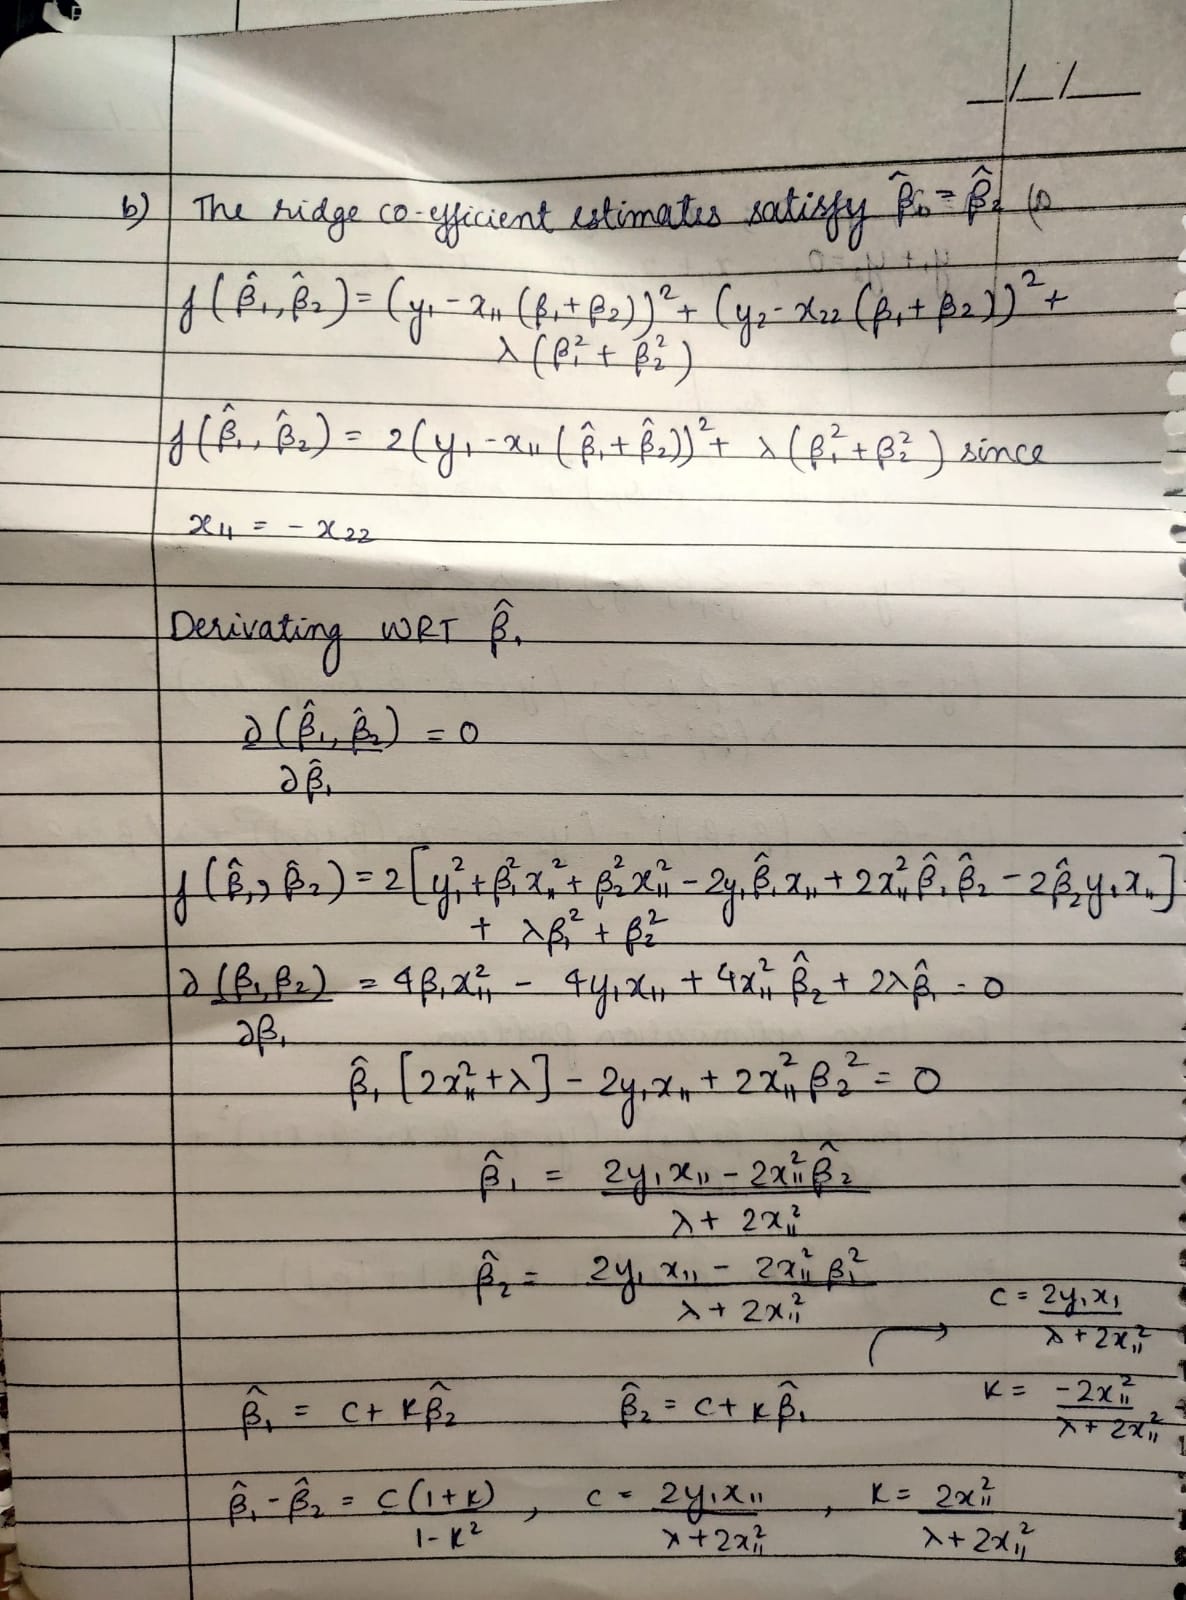 _/_/__
b) The ridge co-efficient estimates satisfy β̂₁ = β̂₂
f(β̂₁, β̂₂) = (y₁ - x₁₁(β₁+β₂))² + (y₂ - x₂₂(β₁+β₂))² +
λ(β₁² + β₂²)
f(β̂₁, β̂₂) = 2(y₁ - x₁₁(β̂₁+β̂₂))² + λ(β₁²+β₂²) since
x₁₁ = - x₂₂
Derivating WRT β̂₁
∂(β̂₁, β̂₂) = 0
∂β̂₁
f(β̂₁, β̂₂) = 2[y₁² + β₁²x₁₁² + β₂²x₁₁² - 2y₁β̂₁x₁₁ + 2x₁₁²β̂₁β̂₂ - 2β̂₂y₁x₁₁]
+ λβ₁² + β₂²
∂(β₁,β₂) = 4β₁x₁₁² - 4y₁x₁₁ + 4x₁₁²β̂₂ + 2λβ̂₁ = 0
∂β₁
β̂₁[2x₁₁²+λ] - 2y₁x₁₁ + 2x₁₁²β₂² = 0
β̂₁ = 2y₁x₁₁ - 2x₁₁²β̂₂
λ + 2x₁₁²
β̂₂ = 2y₁x₁₁ - 2x₁₁²β₁²
λ + 2x₁₁²
C = 2y₁x₁
λ + 2x₁₁²
β̂₁ = C + Kβ̂₂ β̂₂ = C + Kβ̂₁ K = -2x₁₁²
λ + 2x₁₁²
β̂₁ - β̂₂ = C(1+K) , C = 2y₁x₁₁ , K = 2x₁₁²
1-K² λ+2x₁₁² λ+2x₁₁²